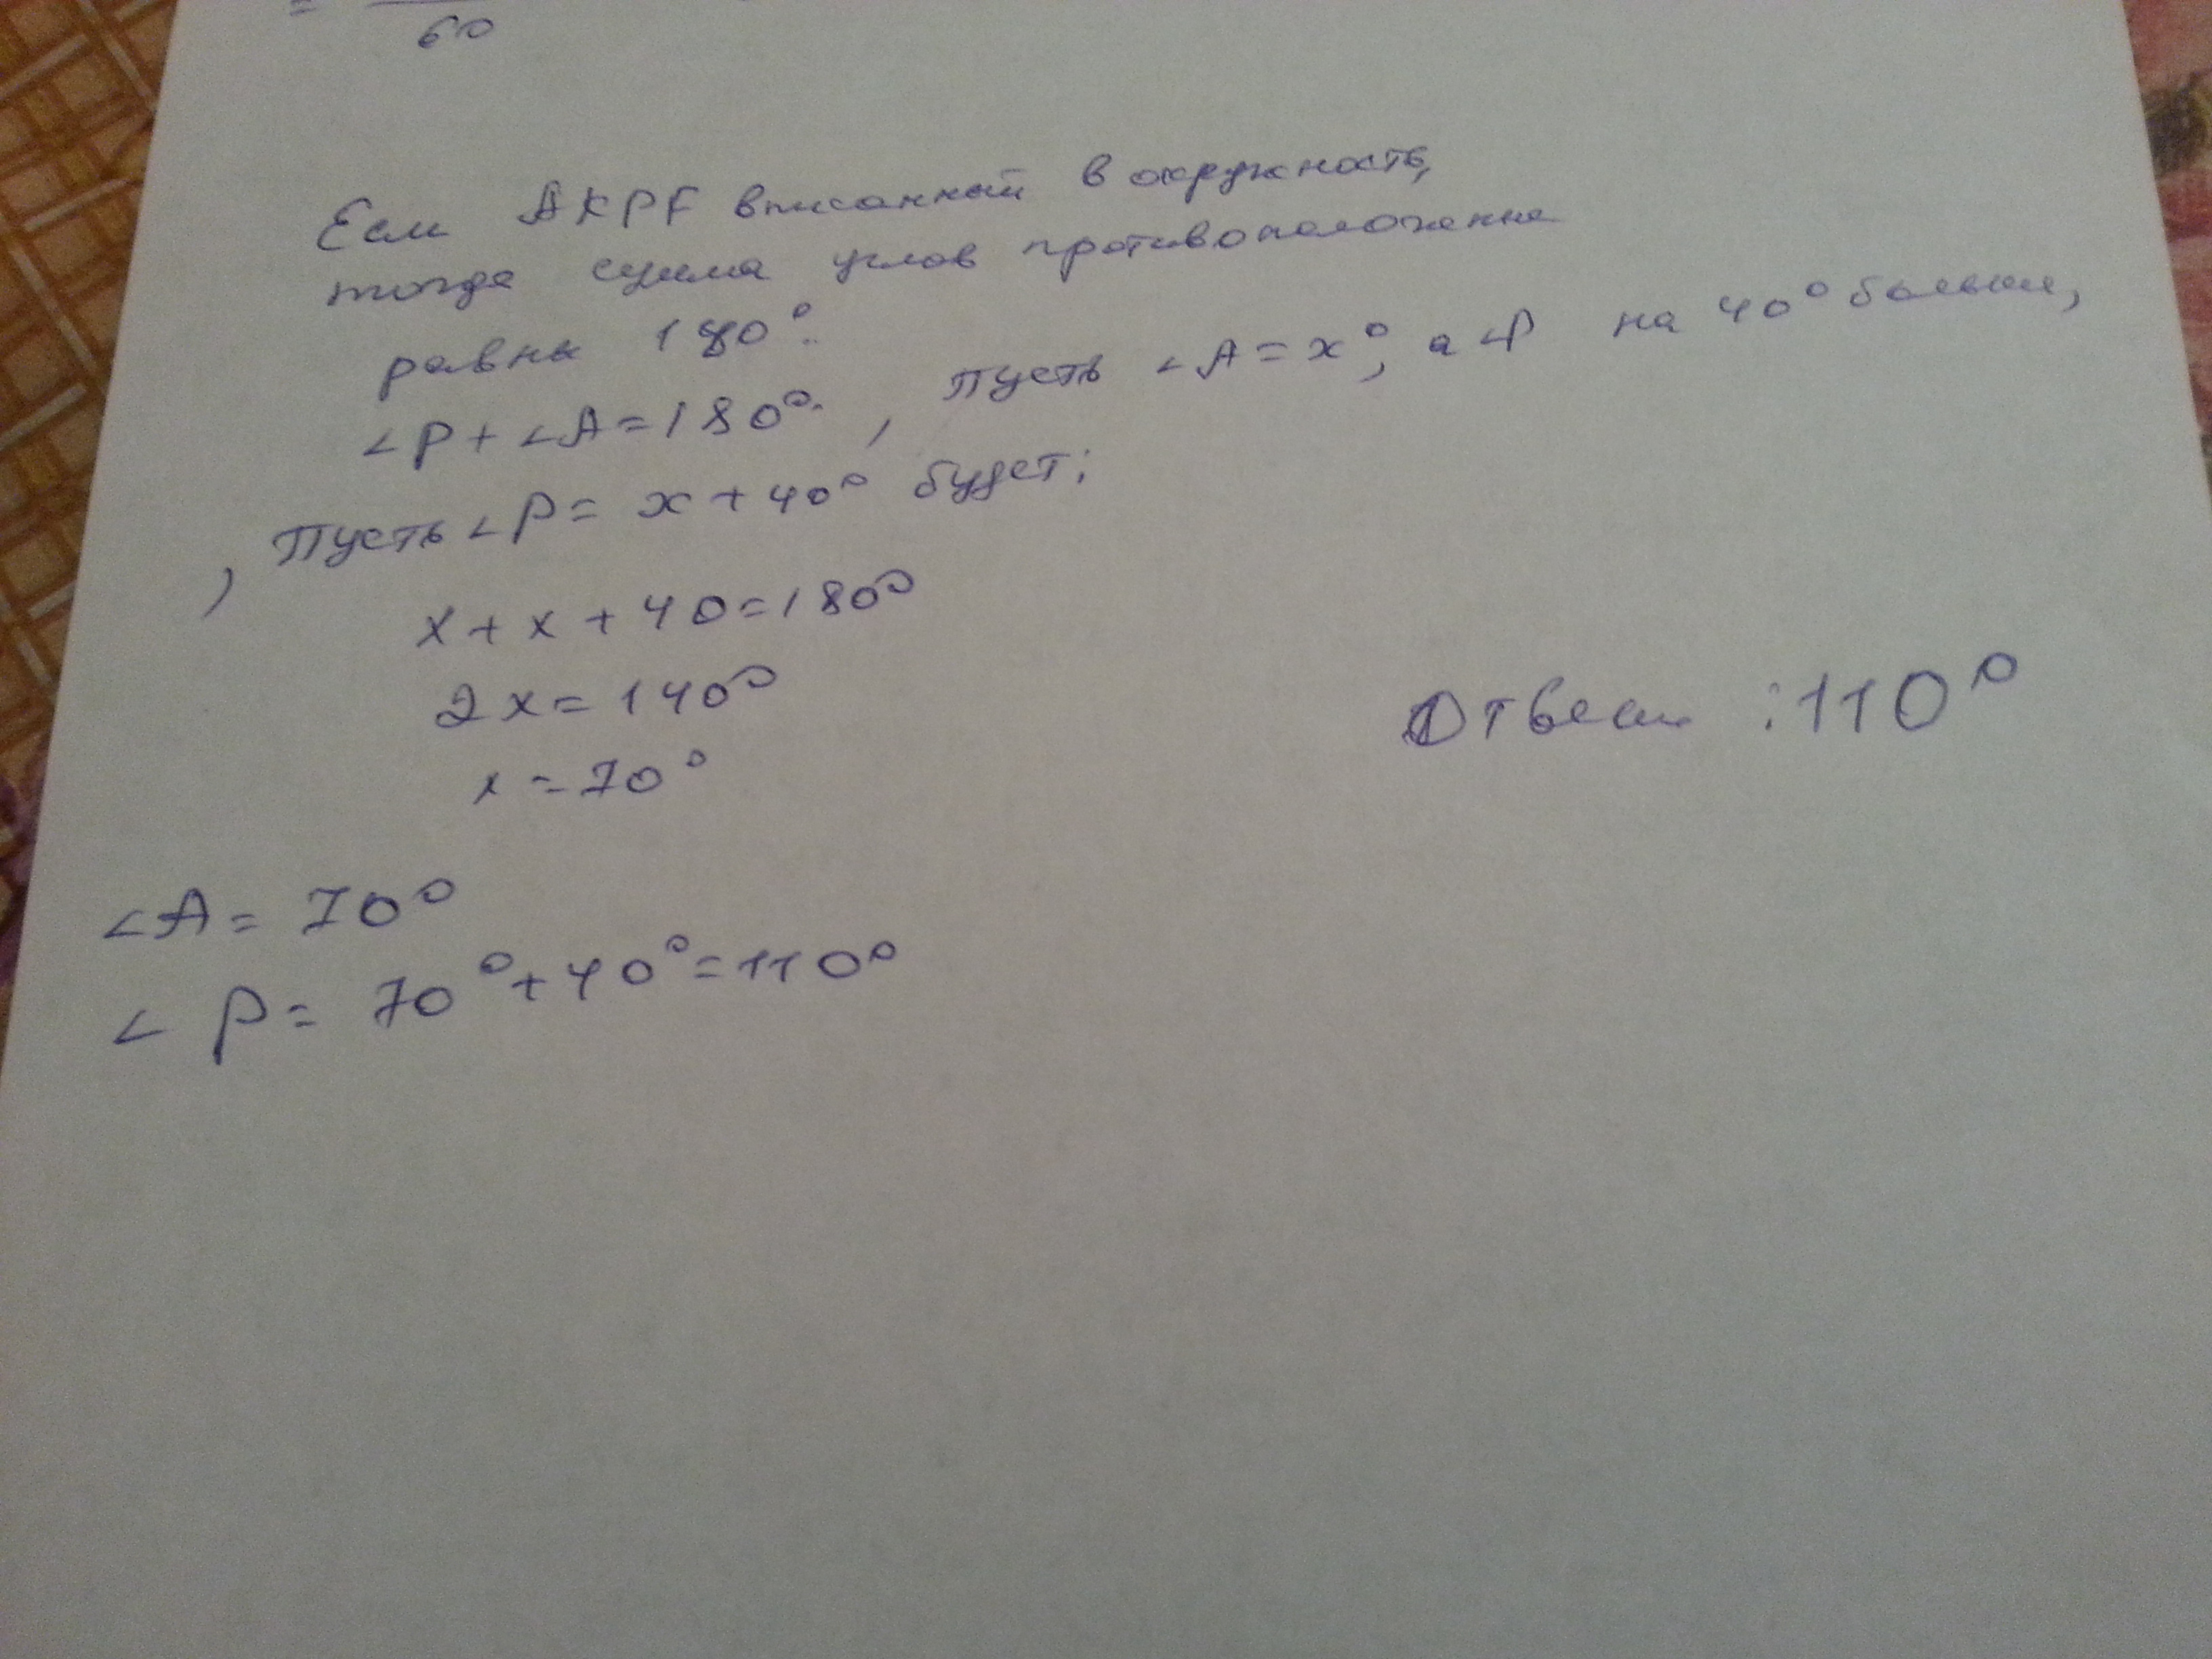 = 60
Если AKPF вписанный в окружность,
тогда сумма углов противоположенна
равны 180°.
∠P + ∠A = 180°. , Пусть ∠A = x°, а ∠P на 40° больше,
, Пусть ∠P = x + 40° будет:
x + x + 40 = 180°
2x = 140°
x = 70°
Ответ : 110°
∠A = 70°
∠P = 70° + 40° = 110°